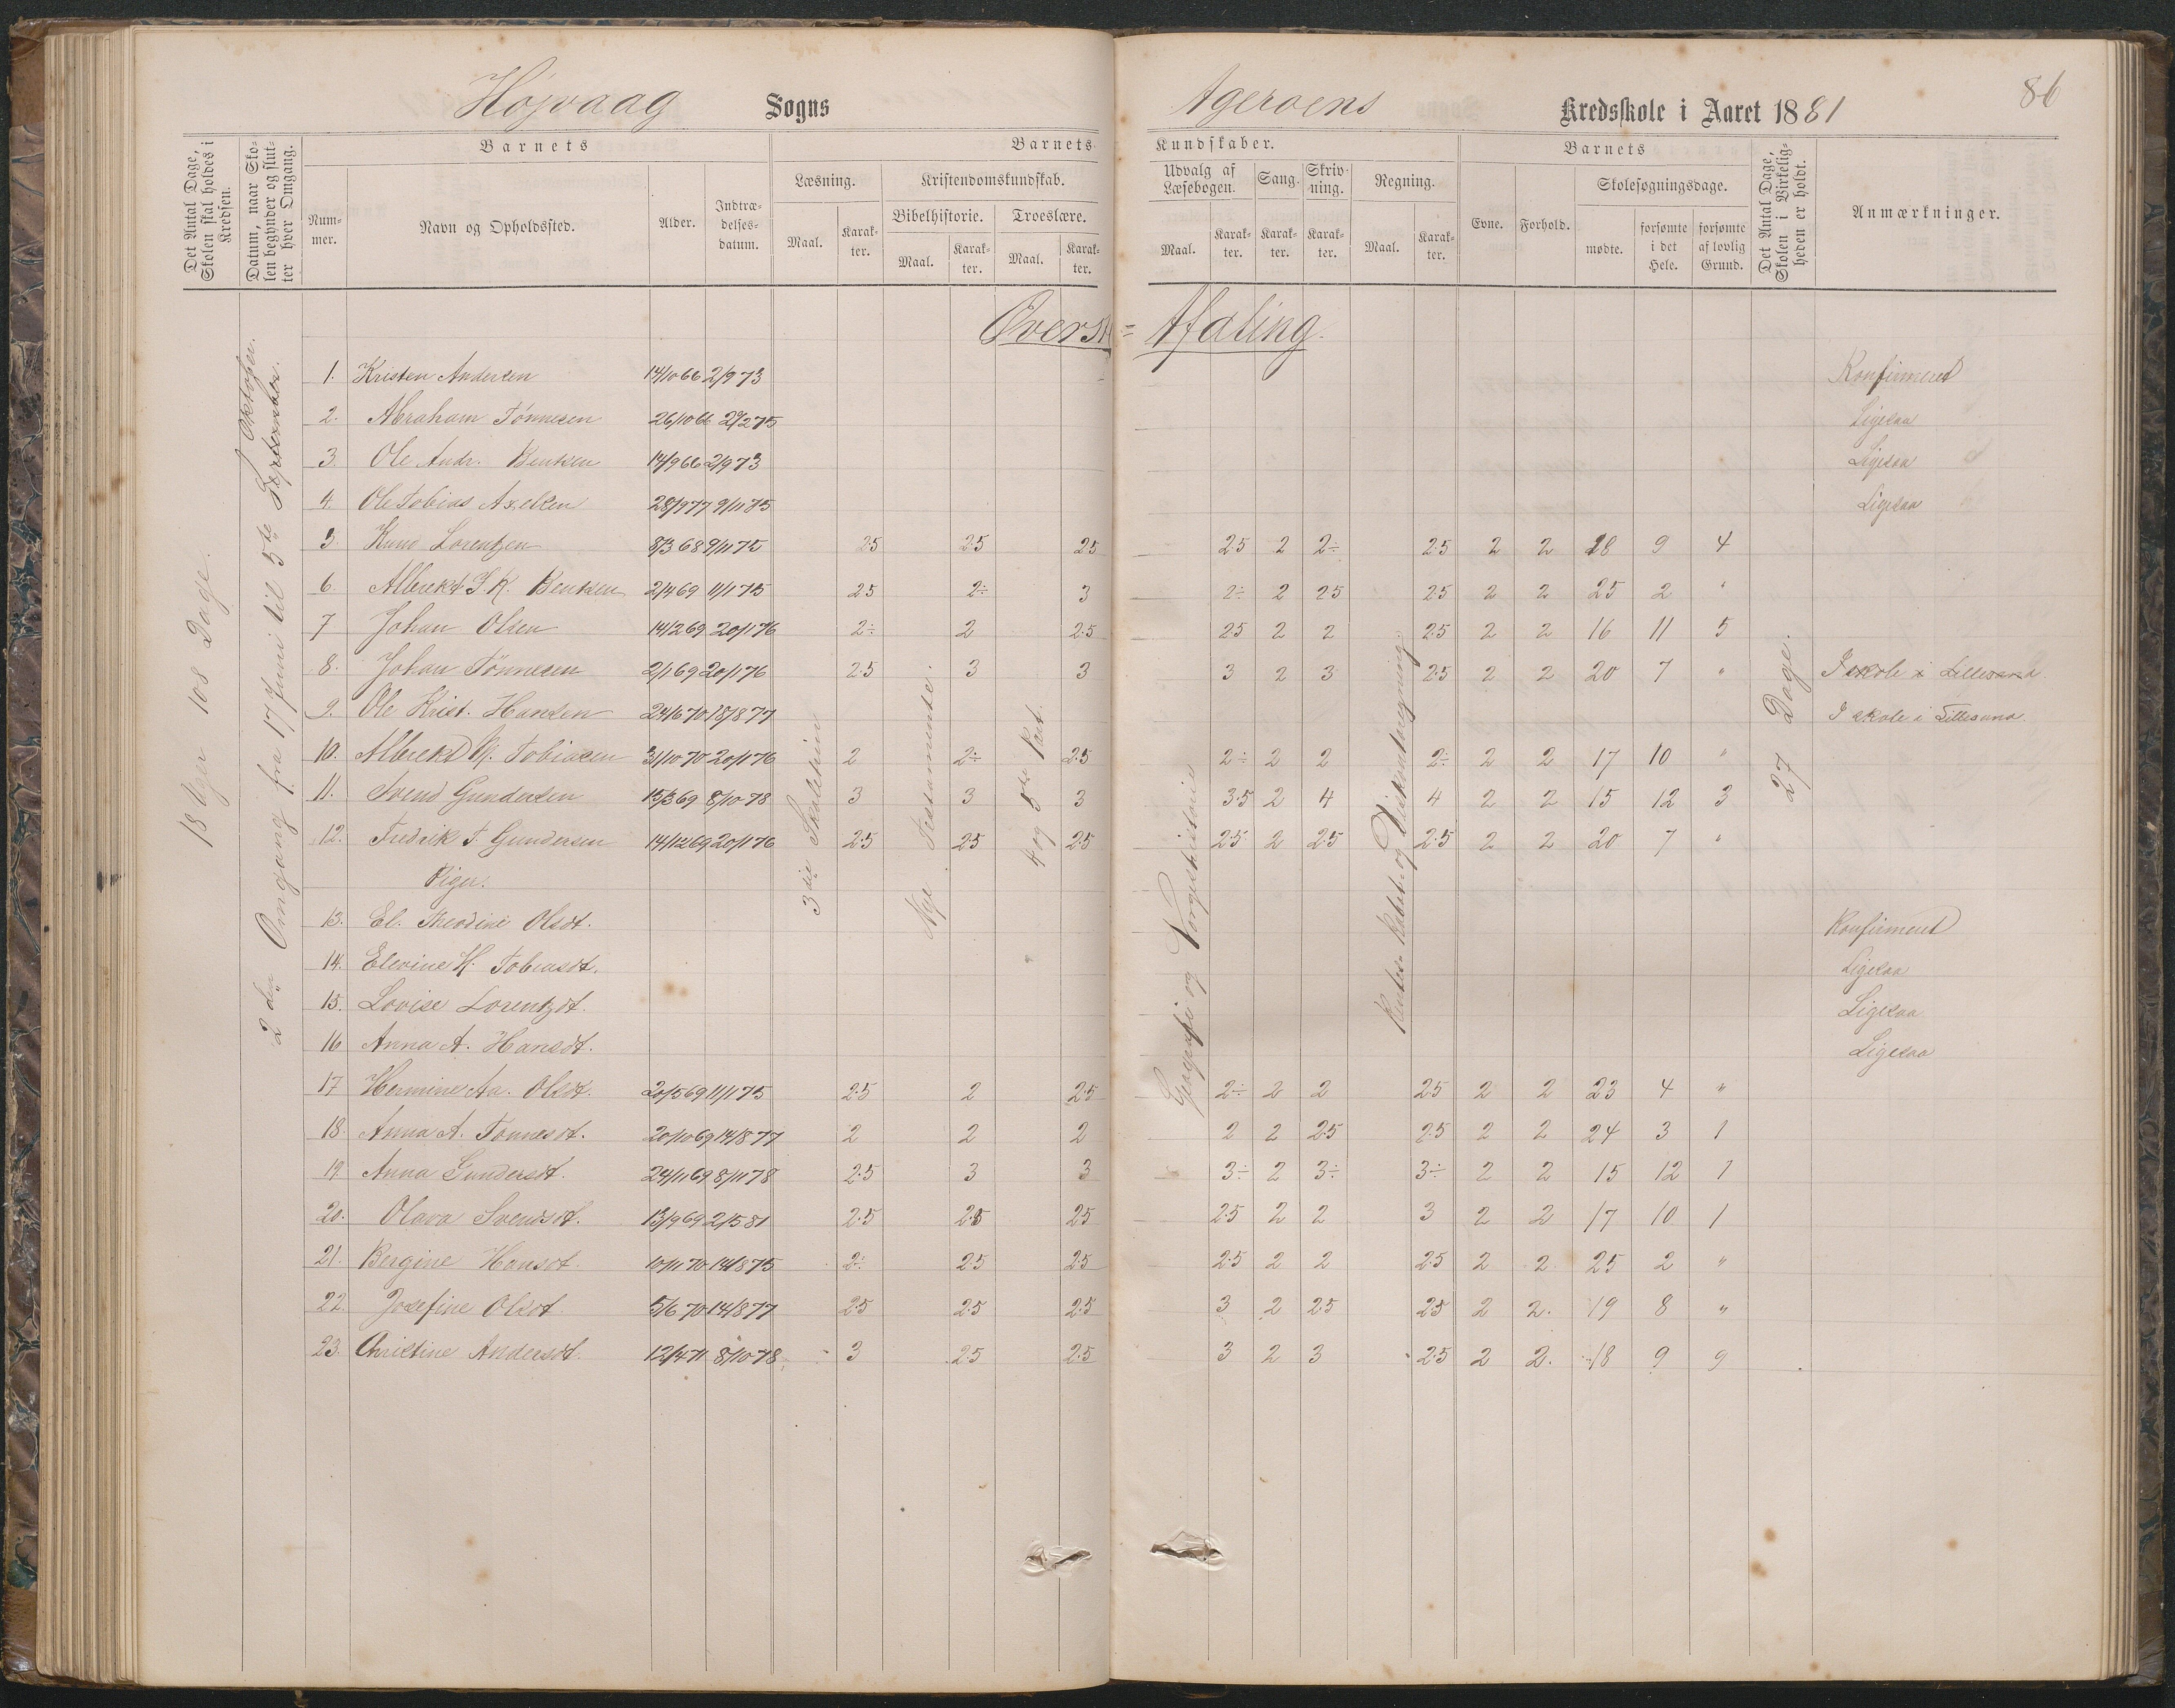 Højvaag Sogns Ageroens Kredsskole i Aaret 1881 86
Det Antal Dage, Skolen skal holdes i Kredsen.
Datum, naar Skolen begynder og slutter hver Omgang.
Barnets
Nummer.
Navn og Opholdssted.
Alder.
Indtrædelsesdatum.
Barnets Kundskaber.
Læsning.
Maal. Karakter.
Kristendomskundskab.
Bibelhistorie. Troeslære.
Maal. Karakter. Maal. Karakter.
Udvalg af Læsebogen. Sang. Skrivning. Regning.
Maal. Karakter. Karakter. Karakter. Maal. Karakter.
Barnets
Evne. Forhold. Skolesøgningsdage.
mødte. forsømte i det Hele. forsømte af lovlig Grund.
Det Antal Dage, Skolen i Virkeligheden er holdt.
Anmærkninger.
18 Uger 108 Dage.
2den Omgang fra 17 Juni til 5te September. Oktober.
3die Skoletrin
Nye Testamente.
4 og 5te Part.
Geografi og Norgeshistorie
Rentes- Rabat- og Diskontoregning.
27 Dage.
Øverste Afdeling.
1. Kristen Andersen 14/10 66 2/9 73 Konfirmeret
2. Abraham Tønnesen 26/10 66 2/2 75 Ligesaa
3. Ole Andr. Bentsen 14/9 66 2/9 73 Ligesaa
4. Ole Tobias Axelsen 28/9 77 9/11 75 Ligesaa
5 Knud Lorentzen 8/3 68 9/11 75 2.5 2.5 2.5 2.5 2 2÷ 2.5 2 2 18 9 4
6. Albrekt J. K. Bentsen 2/4 69 11/1 75 2.5 2÷ 3 2÷ 2 2.5 2.5 2 2 25 2 "
7 Johan Olsen 14/2 69 20/1 76 2÷ 2 2.5 2.5 2 2 2.5 2 2 16 11 5
8. Johan Tönnesen 2/1 69 20/1 76 2.5 3 3 3 2 3 2.5 2 2 20 7 " I skole i Lillesand
9. Ole Krist. Hansen 24/6 70 18/8 77 I skole i Lillesand
10. Albrekt M. Tobiasen 31/10 70 20/1 76 2 2÷ 2.5 2÷ 2 2 2÷ 2 2 17 10 "
11. Svend Gundersen 15/3 69 8/10 78 3 3 3 3.5 2 4 4 2 2 15 12 3
12. Fredrik T. Gundersen 14/12 69 20/1 76 2.5 2.5 2.5 2.5 2 2.5 2.5 2 2 20 7 "
Piger.
13. El. Theodine Olsdt. Konfirmeret
14. Elevine H. Tobiasdt. Ligesaa
15. Lovise Lorentzdt. Ligesaa
16 Anna A. Hansdt. Ligesaa
17 Hermine An. Olsdt. 20/5 69 11/1 75 2.5 2 2.5 2÷ 2 2 2.5 2 2 23 4 "
18. Anna A. Tønnesdt. 20/10 69 14/8 77 2 2 2 2 2 2.5 2.5 2 2 24 3 1
19. Anna Gundersdt. 24/11 69 8/11 78 2.5 3 3 3÷ 2 3÷ 3÷ 2 2 15 12 1
20. Olava Svendsdt. 13/9 69 2/5 81 2.5 2.5 2.5 2.5 2 2 3 2 2 17 10 1
21. Bergine Hansdt. 10/11 70 14/8 75 2÷ 2.5 2.5 2.5 2 2 2.5 2 2 25 2 "
22. Josefine Olsdt. 5/6 70 14/8 77 2.5 2.5 2.5 3 2 2.5 2.5 2 2. 19 8 "
23. Christine Andersdt. 12/4 71 8/10 78 3 2.5 2.5 3 2 3 2.5 2 2. 18 9 9